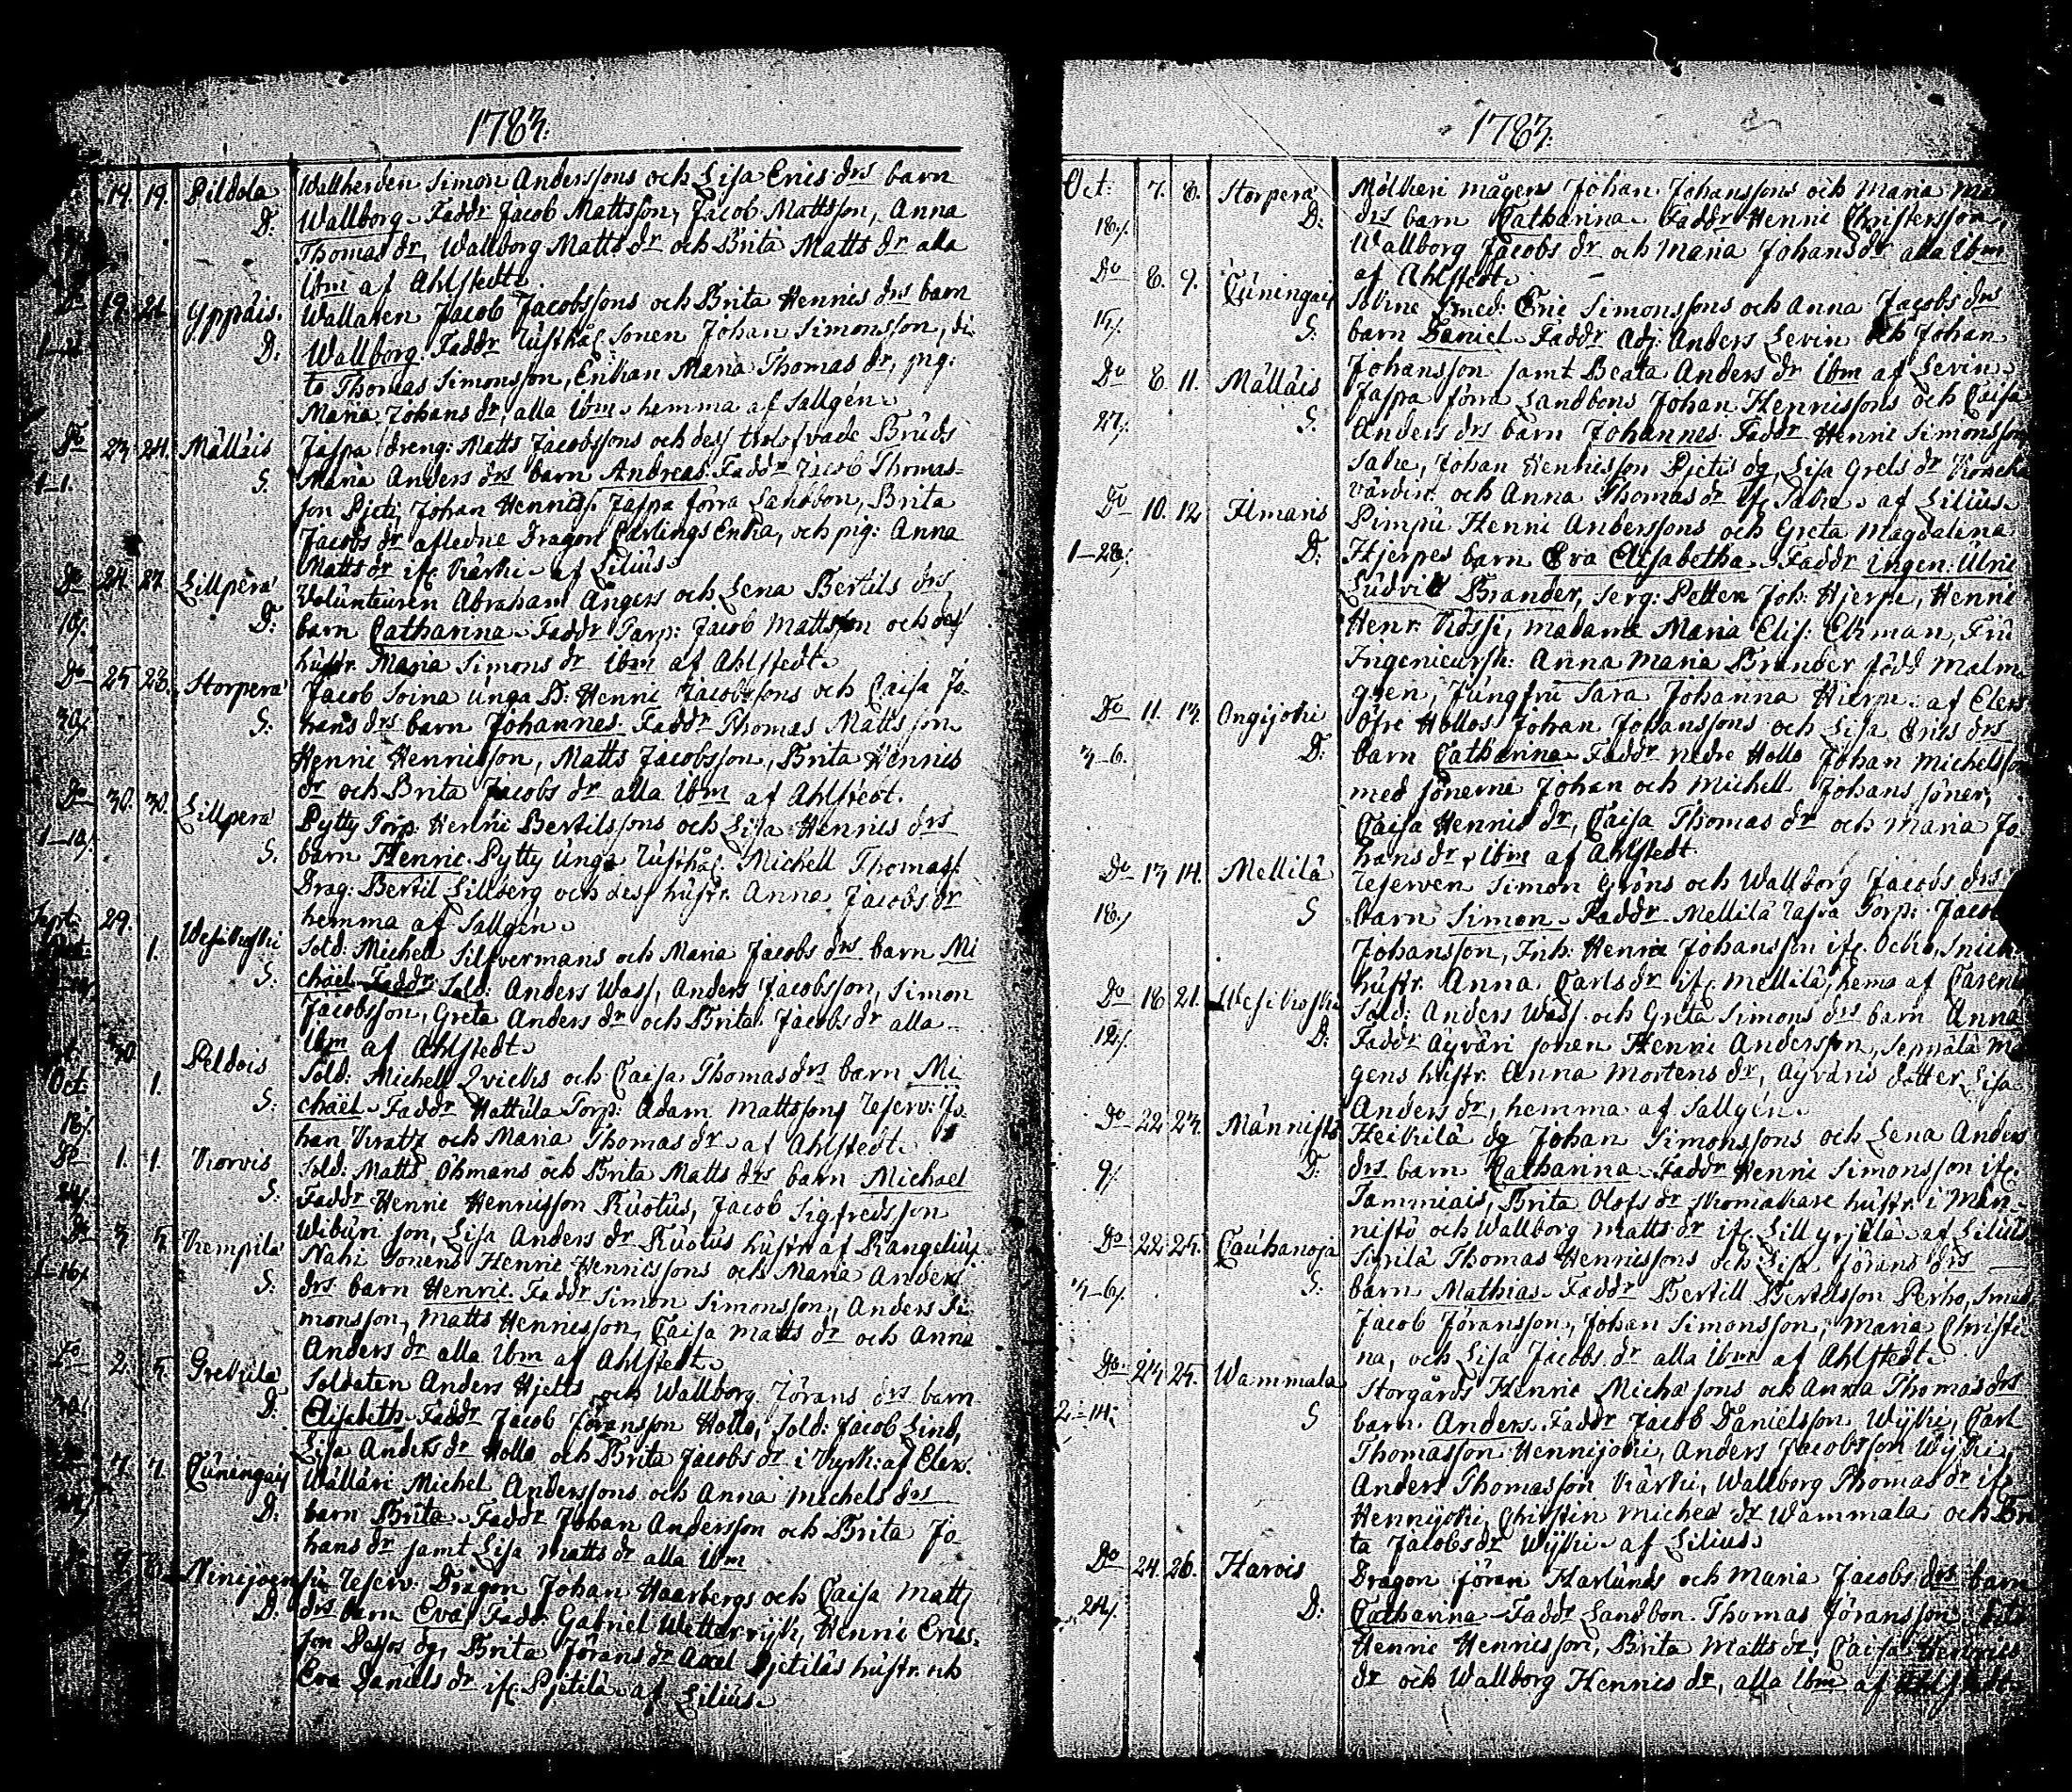 1783.
14. 19. Pildola Wallherden Simon Anderssons och Lisa Erics drs barn
D. Wallborg. Faddr Jacob Mattsson, Jacob Mattsson, Anna
Thomas dr, Wallborg Matts dr och Brita Matts dr alla
ibm af Ahlstedt.
Do 19. 21. Yppäis. Wallaren Jacob Jacobssons och Brita Henrics drs barn
D. Wallborg. Faddr Rusthål. sonen Johan Simonsson, di-
to Thomas Simonsson, Enkan Maria Thomas dr, pig:
Maria Johans dr, alla ibm hemma af Sallgén.
Do 23. 24. Mälläis Jaspa dreng: Matts Jacobssons och dess trolofvade Bruds
1-1. S. Maria Anders drs barn Andreas. Faddr Jacob Thomas-
son Pjeti, Johan Henricss. Jaspa förra Landbon, Brita
Jacobs dr afledne Dragon Carlings Enka, och pig: Anna
Matts dr ifr. Kärki af Lilius.
Do 24. 27. Lillperä Volunteuren Abraham Ångers och Lena Bertils drs
D. barn Catharina. Faddr Torp: Jacob Mattsson och dess
hustr. Maria Simons dr ibm af Ahlstedt.
Do 25 28. Storperä Jacob Soina unga B. Henric Jacobssons och Caisa Jo-
30/. S. hans drs barn Johannes. Faddr Thomas Mattsson
Henric Henricsson, Matts Jacobsson, Brita Henrics
dr och Brita Jacobs dr alla ibm af Ahlstedt.
Do 30. 30. Lillperä Pytty Torp: Henric Bertilssons och Lisa Henrics drs
S. barn Henric. Pytty unga Rusthål. Michell Thomass.
Drag: Bertil Lillberg och dess hustr. Anna Jacobs dr
hemma af Sallgén.
Sept: 29. 1. Wesikoski Sold: Michell Silfvermans och Maria Jacobs drs barn Mi
S. chäel. Faddr Sold: Anders Wass, Anders Jacobsson, Simon
Jacobsson, Greta Anders dr och Brita Jacobs dr alla
ibm af Ahlstedt.
30 Oct: 1. Peldois Sold: Michell Qvicks och Caisa Thomas drs barn Mi
S. chäel. Faddr Hattula Torp: Adam Mattsson, Reserv: Jo-
han Kratz och Maria Thomas dr af Ahlstedt.
Do 1. 1. Korvis Sold: Matts Öhmans och Brita Matts drs barn Michael
S. Faddr Henric Henricsson Ruotus, Jacob Sigfredsson
Wiburi son, Lisa Anders dr Ruotus hustr. af Rangelius.
Do 3. 5. Kempilä Nahi Sonens Henric Henricssons och Maria Anders
S. drs barn Henric. Faddr Simon Simonsson, Anders Si-
monsson, Matts Henricsson, Caisa Matts dr och Anna
Anders dr alla ibm af Ahlstedt.
Do 2. 5. Grekilä Soldaten Anders Hjelts och Wallborg Jörans drs barn
D. Elisabeth. Faddr Jacob Jöransson Hollo, Sold: Jacob Lind,
Lisa Anders dr Hollo och Brita Jacobs dr i Kyrk: af Elers.
7. 7. Cuningais Wälläri Michel Anderssons och Anna Michels drs
D. barn Brita. Faddr Johan Andersson och Brita Jo-
hans dr samt Lisa Matts dr alla ibm
7. 8. Ninijoensu Reserv: Dragon Johan Haarbergs och Caisa Matts
D. drs barn Eva. Faddr Gabriel Wetterrijk, Henric Erics-
son dg, Brita Jörans dr Axel Pjetiläs hustr. och
Eva Daniels dr ifr. Pjetilä af Lilius.
1783.
Oct: 7. 8. Storperä Mölkeri mågens Johan Johanssons och Maria
18/. D. drs barn Catharina. Faddr Henric Christersson,
Wallborg Jacobs dr och Maria Johans dr alla ibm
af Ahlstedt.
Do 8. 9. Cuningais Sokne Smed: Eric Simonssons och Anna Jacobs drs
15/. S. barn Daniel. Faddr Adj: Anders Levin och Johan
Johansson samt Beata Anders dr ibm af Levin.
Do 8. 11. Mälläis Jaspa förra Landbons Johan Henricssons och Caisa
27/. S. Anders drs barn Johannes. Faddr Henric Simonsson
Sake, Johan Henricsson Pjetis dg, Lisa Grels dr
och Anna Thomas dr ifr. Sake af Lilius.
Do 10. 12 Ilmaris Pimpu Henric Anderssons och Greta Magdalena
1-28/. D. Hjerpes barn Eva Elisabetha. Faddr Ingen: Ulric
Ludvik Brander, Serg: Petter Joh: Hjerpe, Henric
Henr: Kossi, Madame Maria Elis: Ekman, Fru
Ingenieursk: Anna Maria Brander född Malm-
gren, Jungfru Sara Johanna Hierpe af Elers
Do 11. 13. Ongijoki Öfre Hollos Johan Johanssons och Lisa Erics drs
3-6. D. barn Catharina. Faddr nedre Hollo Johan Michelsson
med sönerne Johan och Michell Johans söner,
Caisa Henrics dr, Caisa Thomas dr och Maria Jo-
hans dr, ibm af Ahlstedt.
Do 13 14. Mellilä Reserven Simon Gröns och Wallborg Jacobs drs
18/. S barn Simon. Faddr Mellilä Torp: Jacob
Johansson, Inh: Henric Johansson ifr. Ocko,
hustr. Anna Carls dr ifr. Mellilä, hema af
Do 18 21. Wesikoski Sold: Anders Wass. och Greta Simons drs barn Anna
12/. D: Faddr Äyväri sonen Henric Andersson, Seppälä må-
gens hustr. Anna Mortens dr, Äyväris dotter Lisa
Anders dr, hemma af Sallgén.
Do 22 23. Männistö Heikilä dg Johan Simonssons och Lena Anders
9/. D: drs barn Catharina. Faddr Henric Simonsson ifr.
Tammiais, Brita Olofs dr Skomakare hustr. i Män-
nistö och Wallborg Matts dr ifr. Lill yrjälä af Lilius.
Do 22 25. Cauhanoja Simila Thomas Henricssons och Lisa Jörans drs
3-6/. S. barn Mathias. Faddr Bertill Bertelsson Perho, Smed
Jacob Jöransson, Johan Simonsson, Maria Christi
na, och Lisa Jacobs dr alla ibm af Ahlstedt.
Do. 24 25. Wammala Storgårds Henric Michelssons och Anna Thomas drs
2-14. S barn Anders. Faddr Jacob Danielsson Wijki, Carl
Thomasson Hennijoki, Anders Jacobsson Wijki
Anders Thomasson Kärki, Wallborg Thomas dr ifr
Hennijoki, Christin Michel dr Wammala och Bri
ta Jacobs dr Wijki af Lilius.
Do 24. 26. Harois Dragon Jöran Harlunds och Maria Jacobs drs barn
24/. D: Catharina. Faddr Landbon Thomas Jöransson,
Henric Henricsson, Brita Matts dr, Caisa Henrics
dr och Wallborg Henrics dr, alla ibm af Ahlstedt.